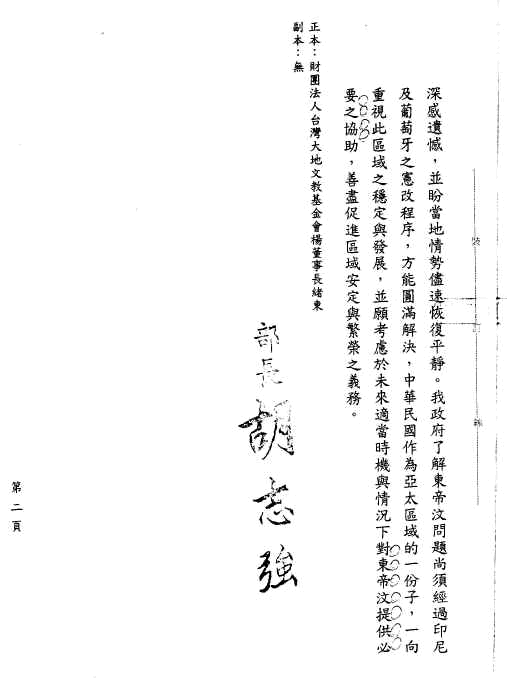 深感遺憾，並盼當地情勢儘速恢復平靜。我政府了解東帝汶問題尚須經過印尼
及葡萄牙之憲改程序，方能圓滿解決，中華民國作為亞太區域的一份子，一向
重視此區域之穩定與發展，並願考慮於未來適當時機與情況下對東帝汶提供必
要之協助，善盡促進區域安定與繁榮之義務。
正本：財團法人台灣大地文教基金會楊董事長緒東
副本：無
部長 胡志強
第二頁
裝
訂
線